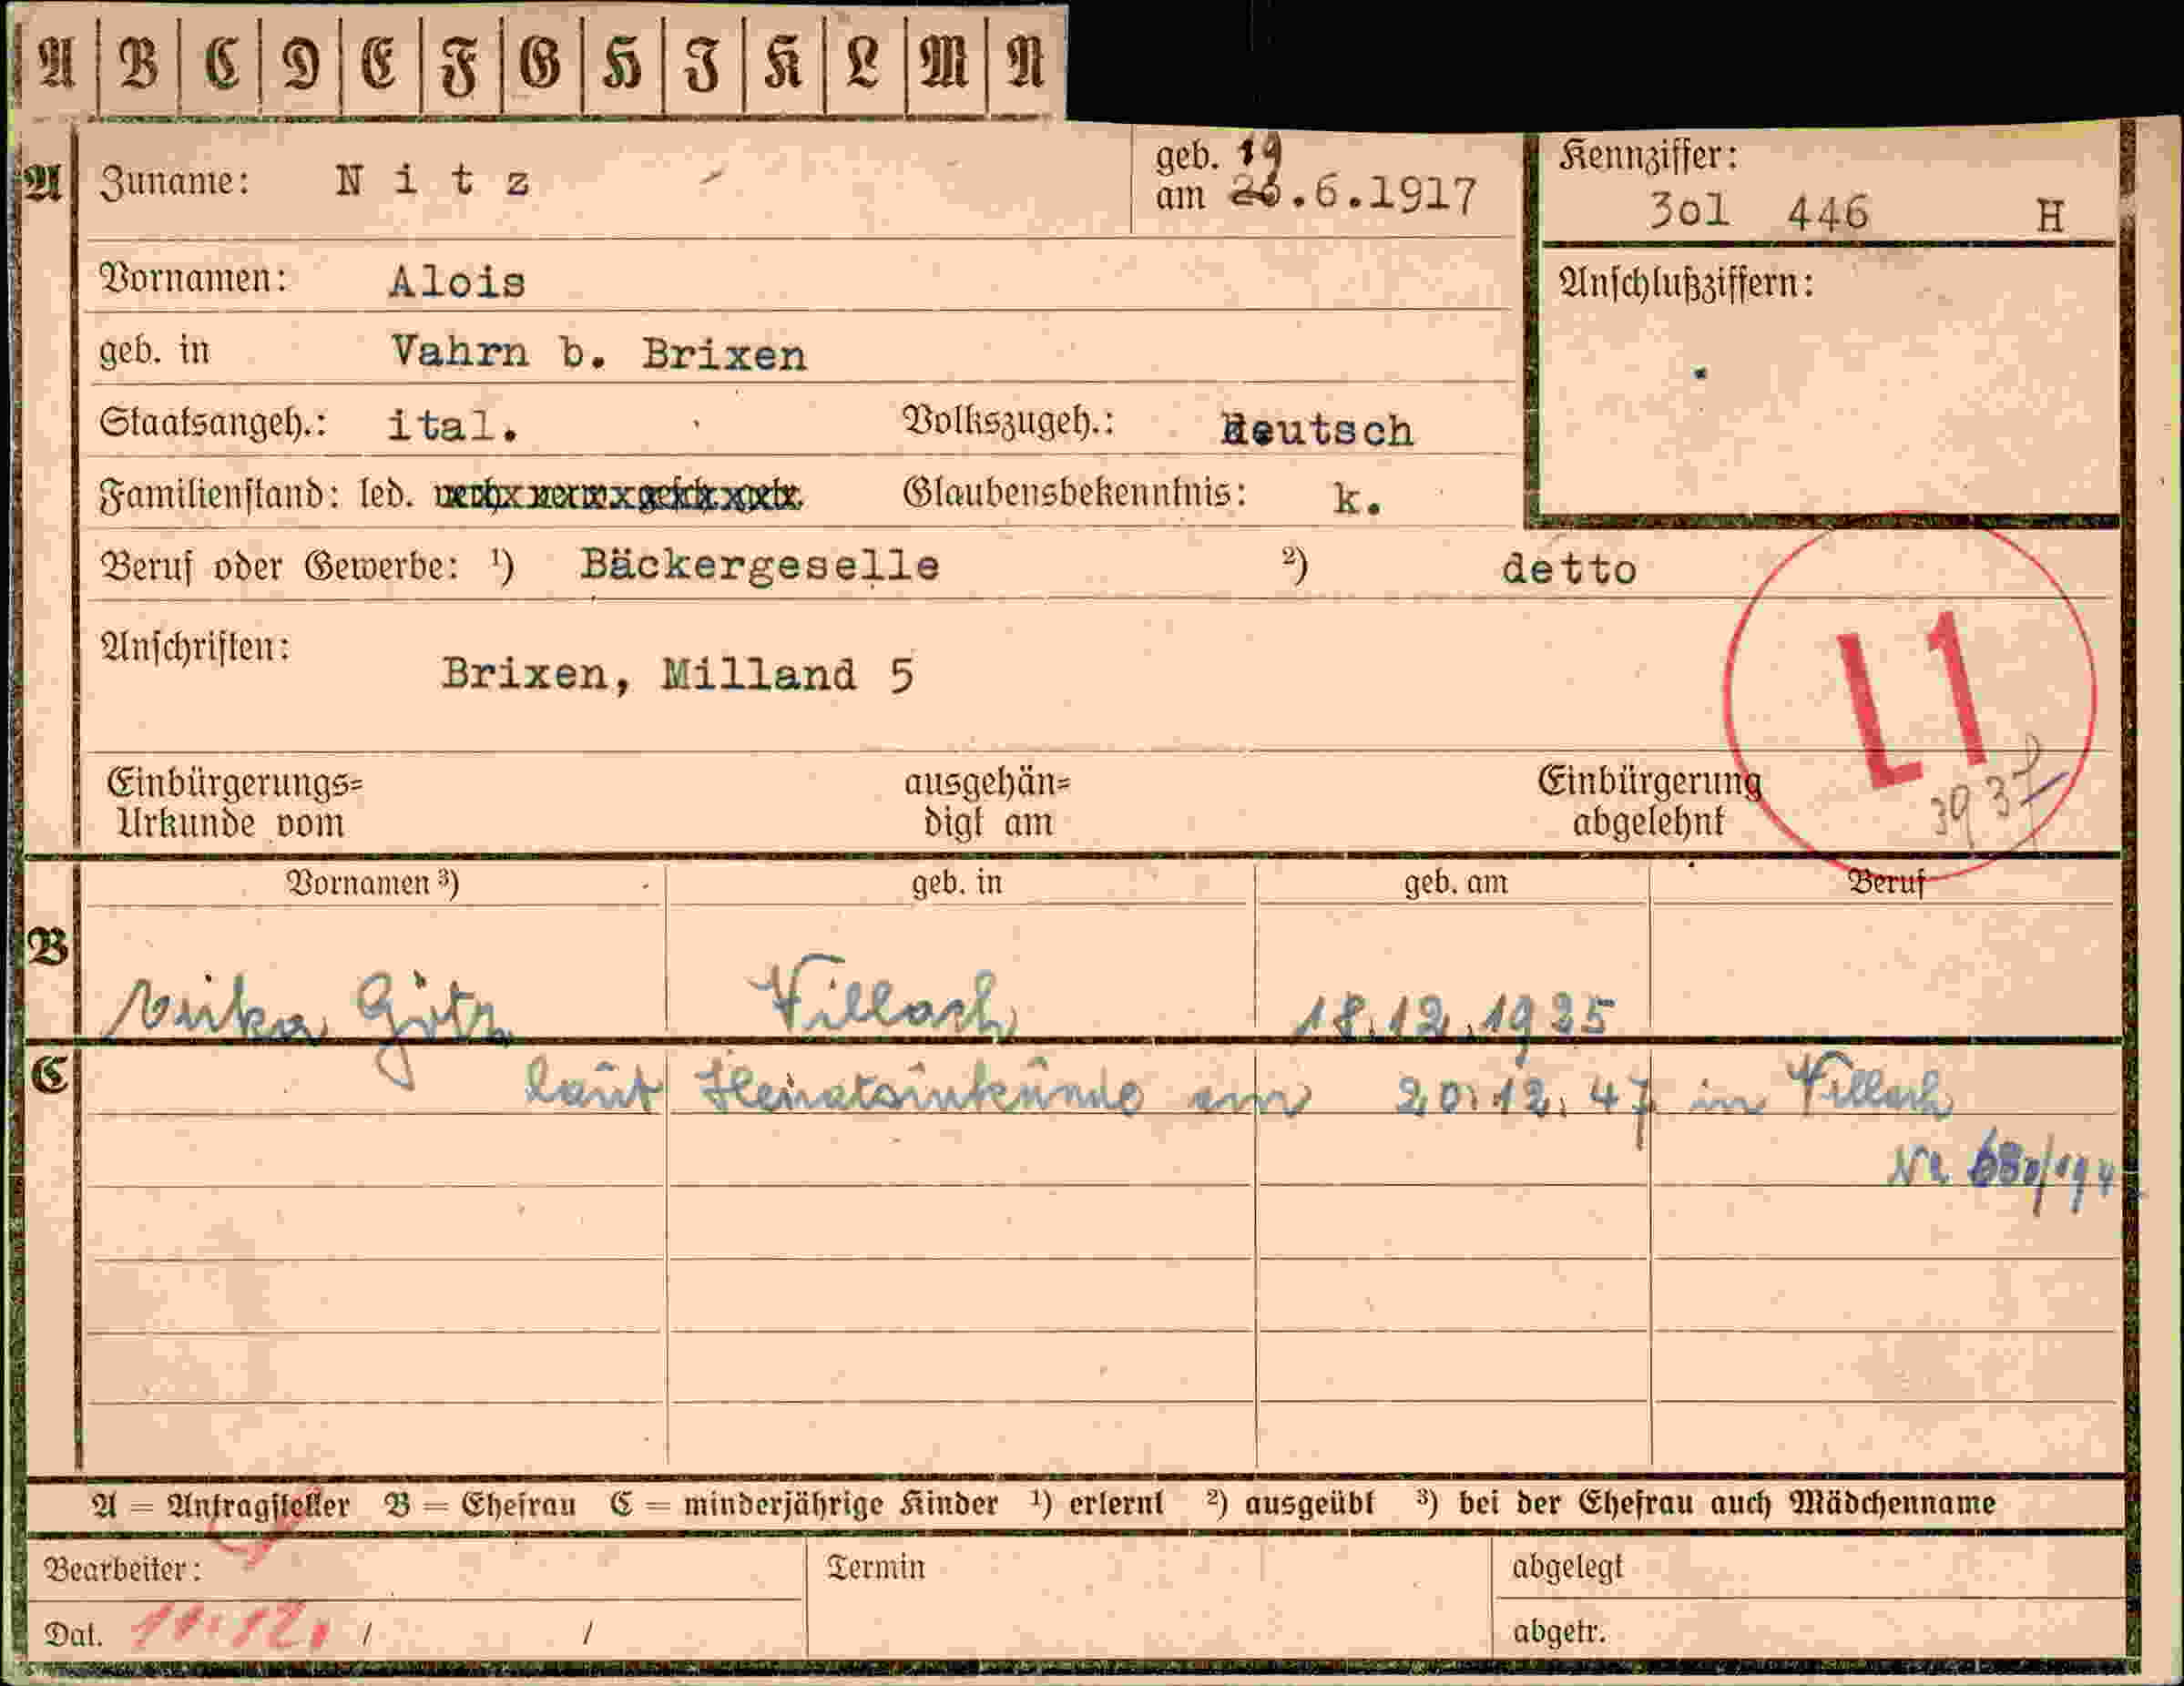 A B C D E F G H I K L M N
A Zuname: Nitz geb. am 19.6.1917
Kennziffer: 3o1 446 H
Vornamen: Alois
Anschlußziffern:
geb. in Vahrn b. Brixen
Staatsangeh.: ital. Volkszugeh.: deutsch
Familienstand: led. Glaubensbekenntnis: k.
Beruf oder Gewerbe: ¹) Bäckergeselle ²) detto
Anschriften: Brixen, Milland 5
L1
Einbürgerungs= ausgehän= Einbürgerung
Urkunde vom digt am abgelehnt
Vornamen ³) geb. in geb. am Beruf
B Götz Villach 18.12.1925
C laut Heiratsurkunde am 20.12.47 in Villach
A = Antragsteller B = Ehefrau C = minderjährige Kinder ¹) erlernt ²) ausgeübt ³) bei der Ehefrau auch Mädchenname
Bearbeiter: Termin abgelegt
Dat. 11.12. / / abgetr.